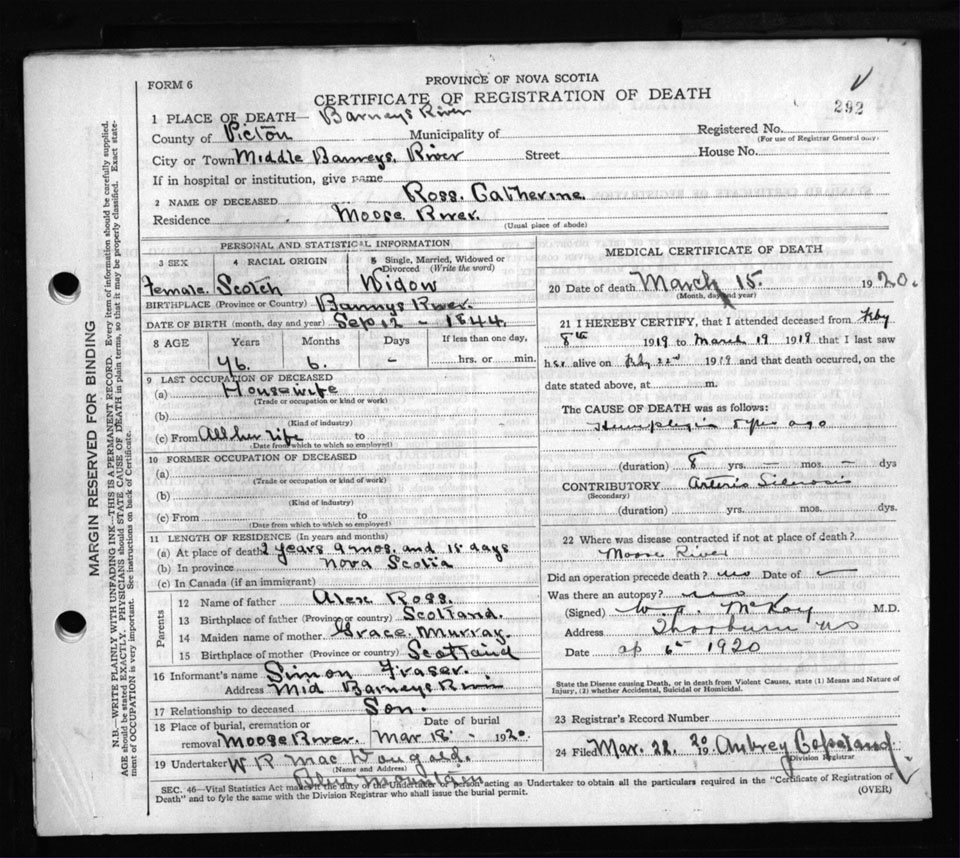 PROVINCE OF NOVA SCOTIA
FORM 6
CERTIFICATE OF REGISTRATION OF DEATH
292
1 PLACE OF DEATH— Barneys River
County of Picton Municipality of Registered No.
(For use of Registrar General only)
City or Town Middle Barneys River Street House No.
If in hospital or institution, give name
2 NAME OF DECEASED Ross. Catherine
Residence Moose River.
(Usual place of abode)
PERSONAL AND STATISTICAL INFORMATION
3 SEX 4 RACIAL ORIGIN 5 Single, Married, Widowed or Divorced (Write the word)
Female. Scotch Widow
BIRTHPLACE (Province or Country) Barnys River.
DATE OF BIRTH (month, day and year) Sep 12 - 1844.
8 AGE Years Months Days If less than one day,
76. 6. - hrs. or min.
9 LAST OCCUPATION OF DECEASED
(a) Housewife
(Trade or occupation or kind or work)
(b)
(Kind of industry)
(c) From All her life to
(Date from which to which so employed)
10 FORMER OCCUPATION OF DECEASED
(a)
(Trade or occupation or kind of work)
(b)
(Kind of industry)
(c) From to
(Date from which to which so employed)
11 LENGTH OF RESIDENCE (In years and months)
(a) At place of death 2 years 9 mos. and 15 days
(b) In province Nova Scotia
(c) In Canada (if an immigrant)
Parents
12 Name of father Alex Ross.
13 Birthplace of father (Province or country) Scotland.
14 Maiden name of mother Grace Murray.
15 Birthplace of mother (Province or country) Scotland
16 Informant's name Simon Fraser.
Address Mid Barneys River
17 Relationship to deceased Son.
18 Place of burial, cremation or removal Moose River. Date of burial Mar 18 - 1920.
19 Undertaker W R MacDougald.
(Name and Address)
Blue Mountain
MEDICAL CERTIFICATE OF DEATH
20 Date of death March 15. 1920.
(Month, day and year)
21 I HEREBY CERTIFY, that I attended deceased from Feby
8th 1919 to March 19 1919 that I last saw
her alive on Feby 22nd 1919 and that death occurred, on the
date stated above, at m.
The CAUSE OF DEATH was as follows:
8 yrs ago
(duration) 8 yrs. — mos. — dys
CONTRIBUTORY Arterio
(Secondary)
(duration) yrs. mos. dys.
22 Where was disease contracted if not at place of death?
Moose River
Did an operation precede death? no Date of —
Was there an autopsy? no
(Signed) McKay M.D.
Address Thorburn NS
Date Ap 6th 1920
State the Disease causing Death, or in death from Violent Causes, state (1) Means and Nature of
Injury, (2) whether Accidental, Suicidal or Homicidal.
23 Registrar's Record Number
24 Filed Mar. 22. 1920 Aubrey Copeland
Division Registrar
SEC. 46—Vital Statistics Act makes it the duty of the Undertaker or person acting as Undertaker to obtain all the particulars required in the "Certificate of Registration of
Death" and to fyle the same with the Division Registrar who shall issue the burial permit. (OVER)
MARGIN RESERVED FOR BINDING
N.B.—WRITE PLAINLY WITH UNFADING INK—THIS IS A PERMANENT RECORD. Every item of information should be carefully supplied.
AGE should be stated EXACTLY. PHYSICIANS should STATE CAUSE OF DEATH in plain terms, so that it may be properly classified. Exact state-
ment of OCCUPATION is very important. See instructions on back of Certificate.